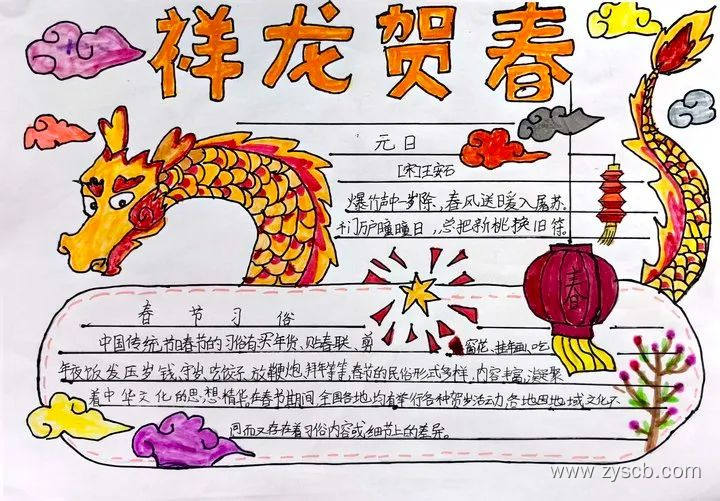 祥龙贺春
元日
[宋]王安石
爆竹声中一岁除,春风送暖入屠苏.
千门万户曈曈日,总把新桃换旧符.
春
春节习俗
中国传统节日春节的习俗有买年货、贴春联、剪窗花、挂年画、吃
年夜饭、发压岁钱、守岁、吃饺子、放鞭炮、拜年等等,春节的民俗形式多样,内容丰富,凝聚
着中华文化的思想情华,在春节期间,全国各地均有举行各种贺岁活动,各地因地域文化不
同而又存在着习俗内容或细节上的差异.
www.zyscb.com